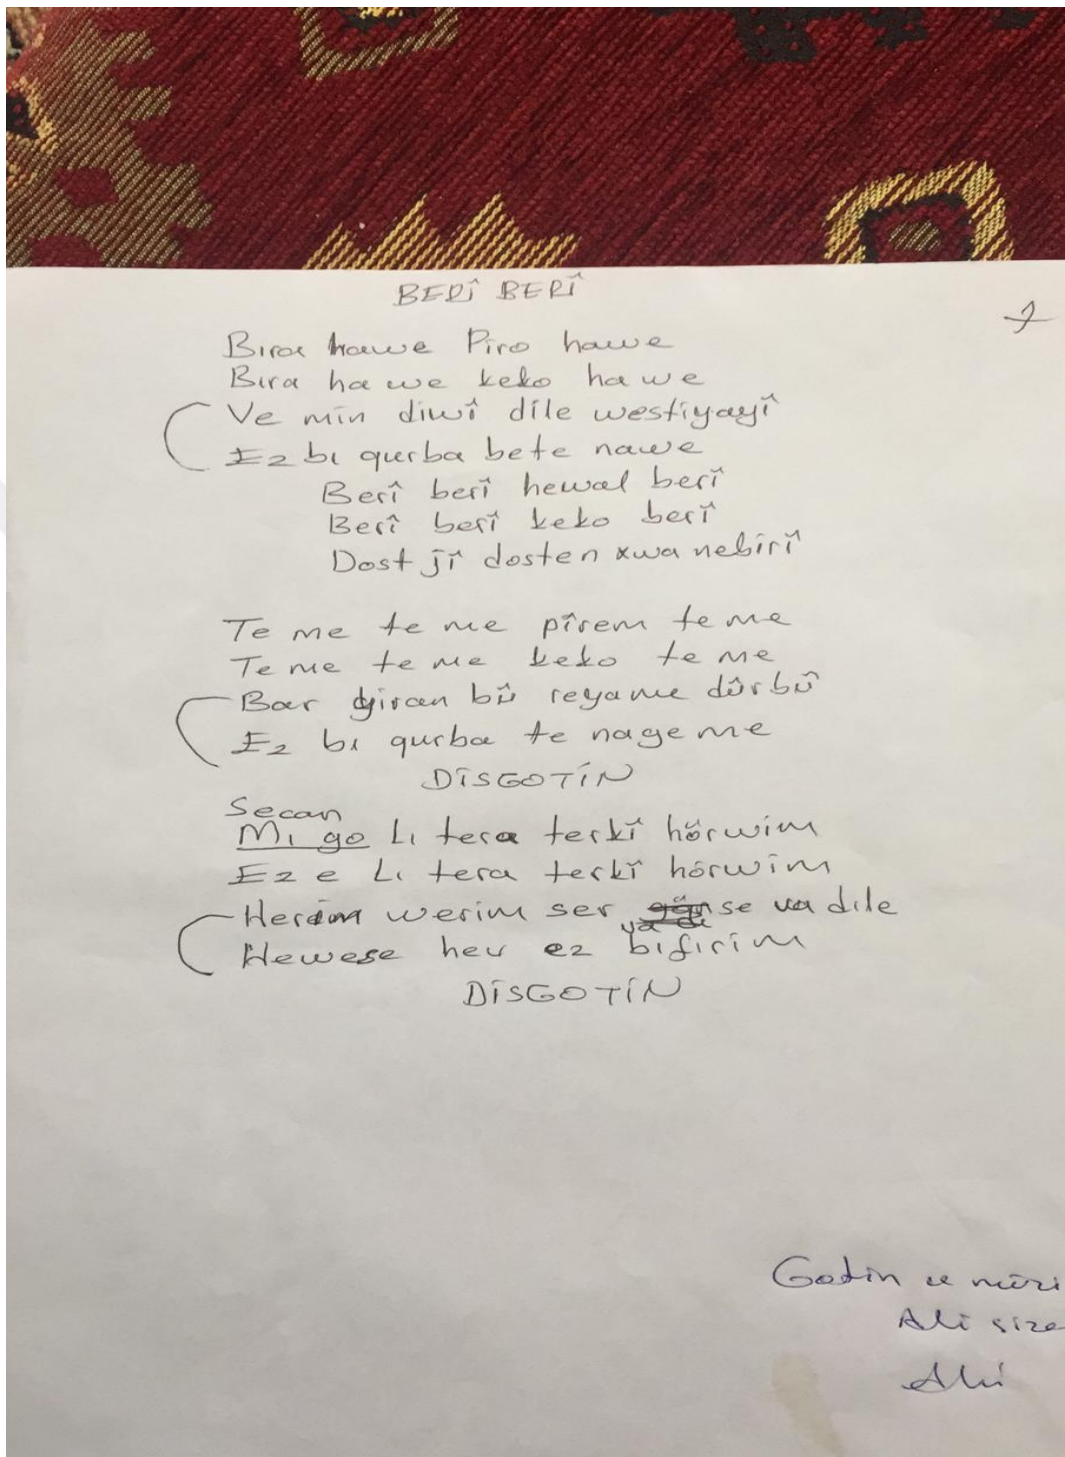 BERÎ BERÎ
Bıra hawe Piro hawe
Bıra ha we keko ha we
Ve min diwî dile westiyayî
Ez bı qurba bete nawe
Berî berî hewal berî
Berî berî keko berî
Dost jî dosten xwa nebirî
Te me te me pîrem te me
Te me te me keko te me
Bar giran bû reyame dûrbû
Ez bı qurba te nageme
DÎSGOTÎN
Secan
Mı go Lı tera terkî hörwim
Ez e Lı tera terkî hörwim
Herım werim ser se va dıle
va di
Hewese hev ez bifirim
DÎSGOTÎN
Gotin u
Ali
Ali